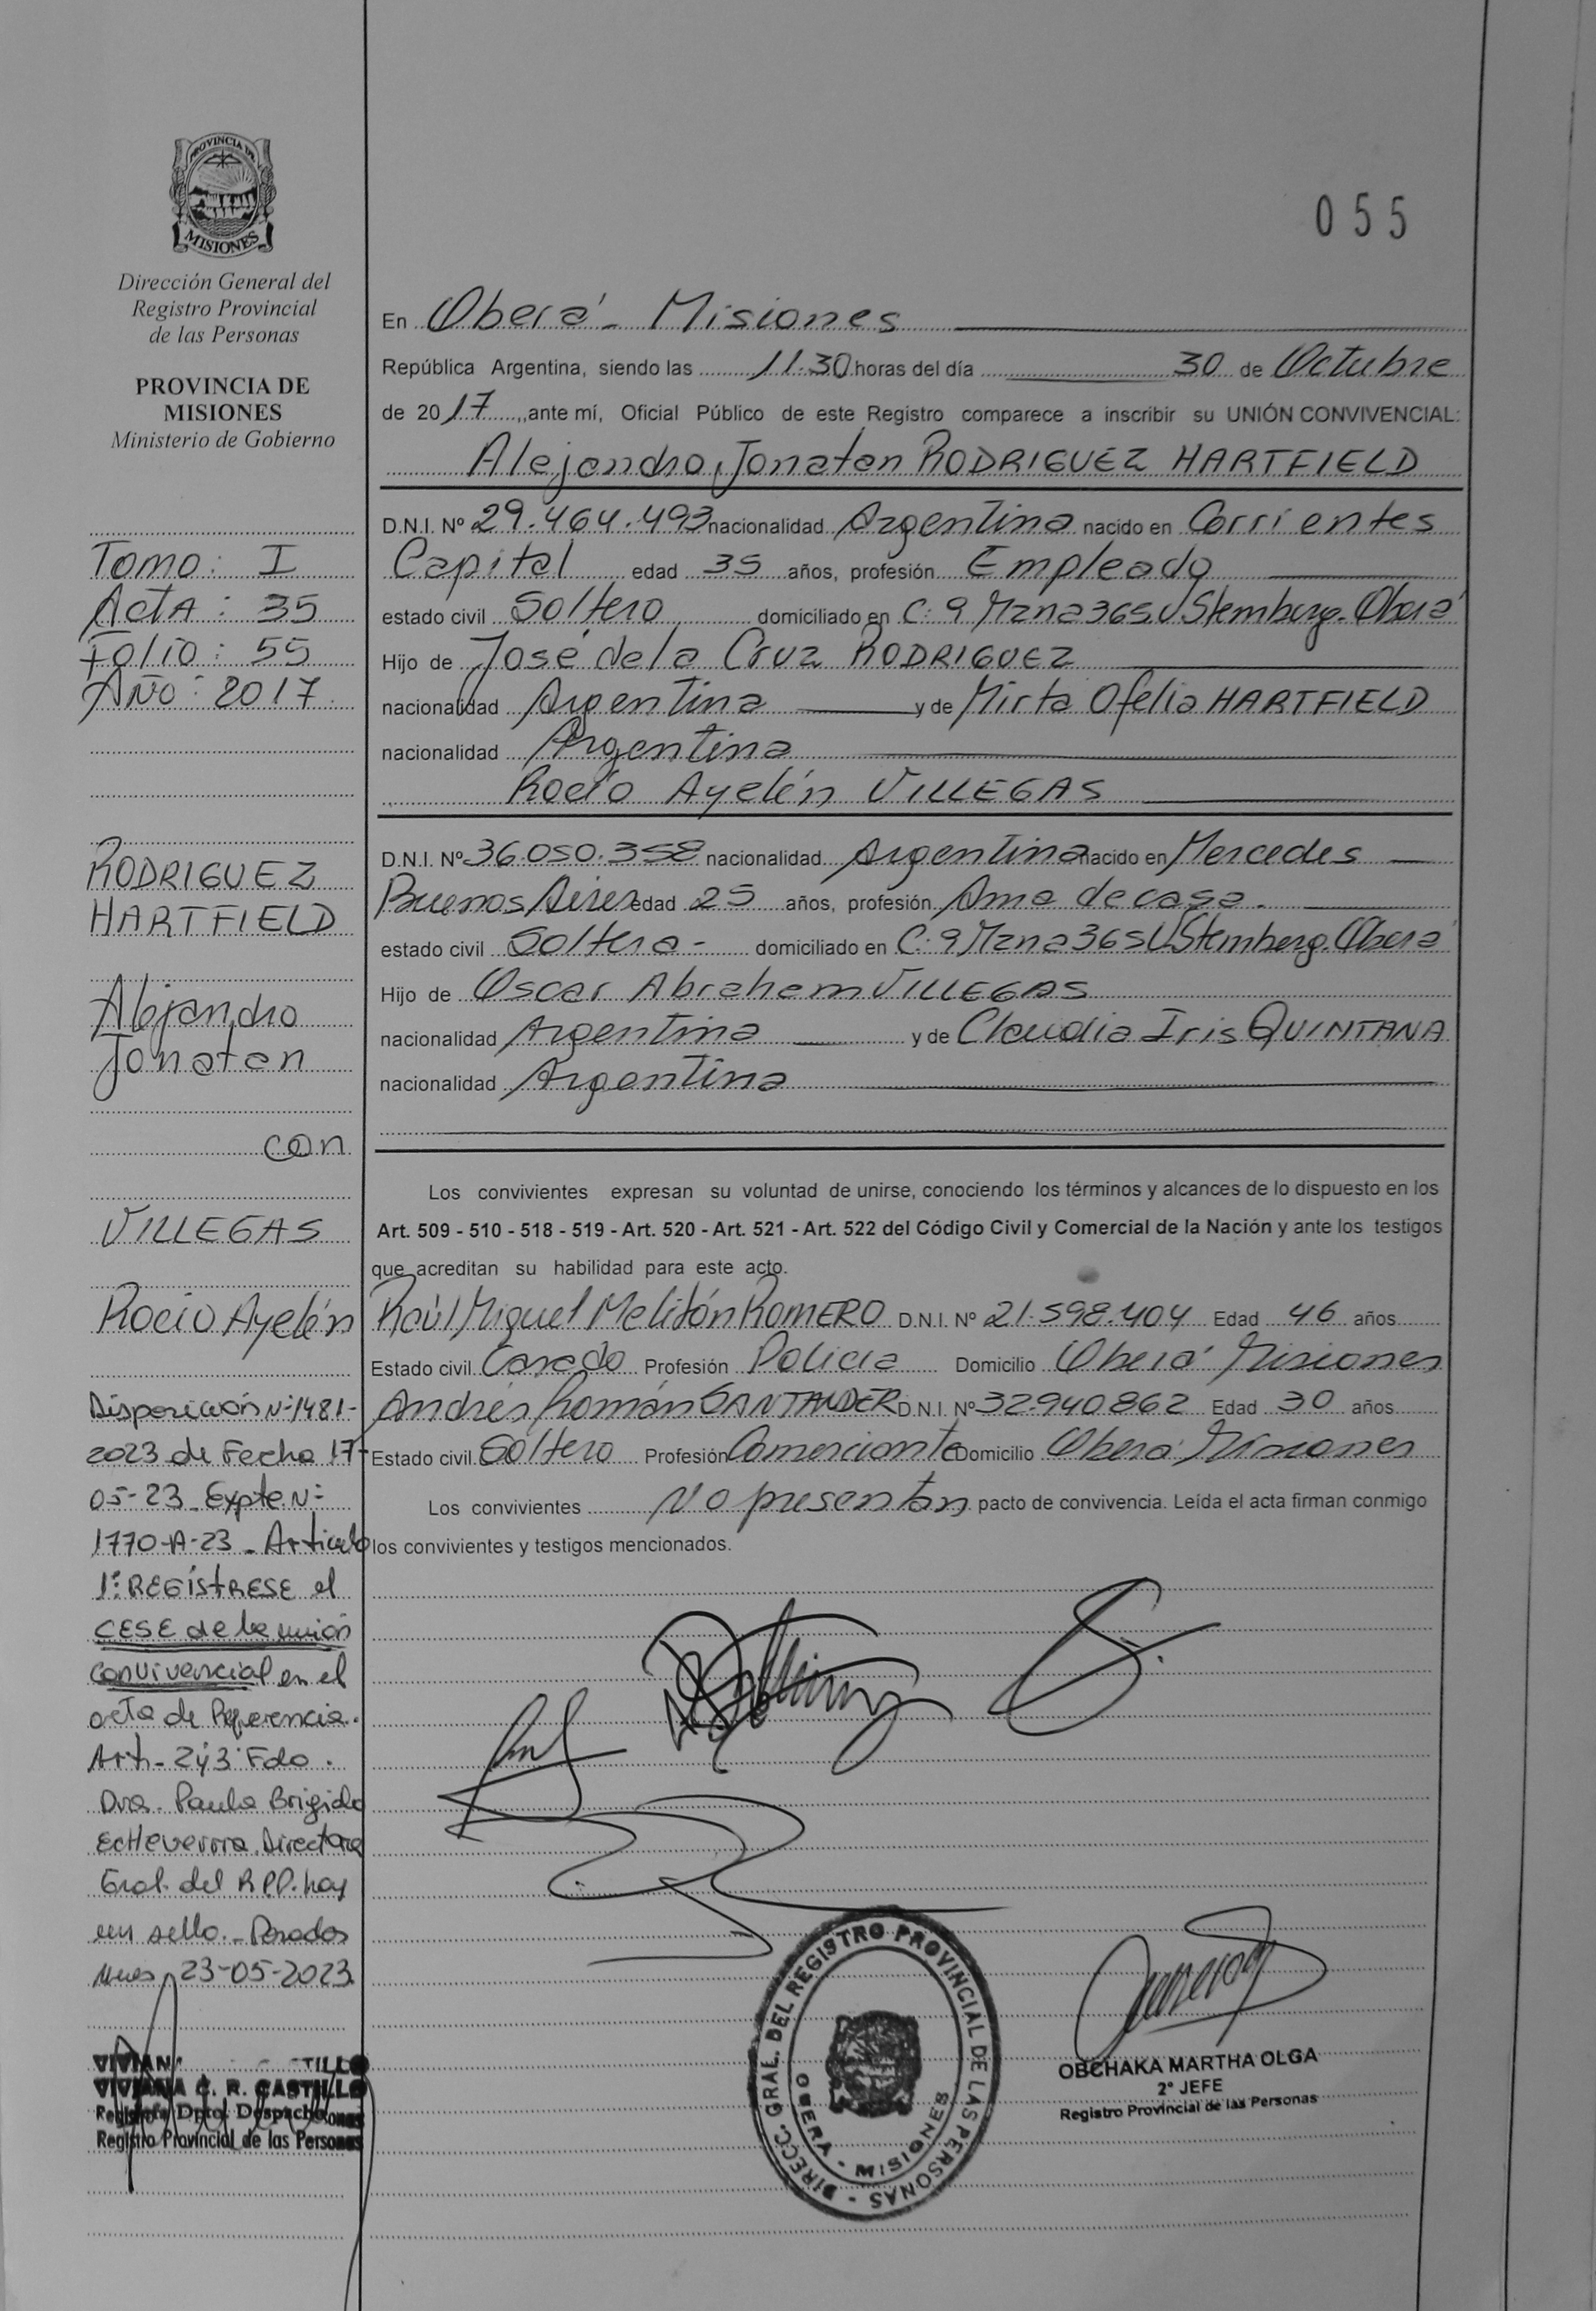 PROVINCIA DE
MISIONES
Dirección General del
Registro Provincial
de las Personas
PROVINCIA DE
MISIONES
Ministerio de Gobierno
Tomo: I
Acta: 35
Folio: 55
Año: 2017
RODRIGUEZ
HARTFIELD
Alejandro
Jonatan
con
VILLEGAS
Rocío Ayelén
Disposición Nº 1481-
2023 de Fecha 17-
05-23. Expte. Nº
1770-A-23 - Articulo
1º: REGÍSTRESE el
CESE de la unión
convivencial en el
acta de Referencia.
Art. 2y3 Fdo.
Dra. Paula Brigida
Echeverria. Directora
Gral. del R.P.P. hay
un sello. - Posadas
Mnes, 23-05-2023
VIVIANA C. R. CASTILLO
Registro Provincial de las Personas
055
En Oberá - Misiones
República Argentina, siendo las 11.30 horas del día 30 de Octubre
de 2017, ,ante mí, Oficial Público de este Registro comparece a inscribir su UNIÓN CONVIVENCIAL:
Alejandro, Jonatan RODRIGUEZ HARTFIELD
D.N.I. Nº 29.464.493 nacionalidad Argentina nacido en Corrientes
Capital edad 35 años, profesión Empleado
estado civil Soltero domiciliado en C: 9 Mzna 365 V. Stemberg. Oberá
Hijo de José de la Cruz RODRIGUEZ
nacionalidad Argentina y de Mirta Ofelia HARTFIELD
nacionalidad Argentina
Rocío Ayelén VILLEGAS
D.N.I. Nº 36.050.358 nacionalidad Argentina nacido en Mercedes
Buenos Aires edad 25 años, profesión Ama de casa.
estado civil Soltera - domiciliado en C: 9 Mzna 365 V. Stemberg. Oberá
Hijo de Oscar Abraham VILLEGAS
nacionalidad Argentina y de Claudia Iris QUINTANA
nacionalidad Argentina
Los convivientes expresan su voluntad de unirse, conociendo los términos y alcances de lo dispuesto en los
Art. 509 - 510 - 518 - 519 - Art. 520 - Art. 521 - Art. 522 del Código Civil y Comercial de la Nación y ante los testigos
que acreditan su habilidad para este acto.
Raúl Miguel Melitón ROMERO D.N.I. Nº 21.598.404 Edad 46 años
Estado civil Casado Profesión Policia Domicilio Oberá Misiones
Andrés Román SANTANDER D.N.I. Nº 32.940.862 Edad 30 años
Estado civil Soltero Profesión Comerciante Domicilio Oberá Misiones
Los convivientes No presentan pacto de convivencia. Leída el acta firman conmigo
los convivientes y testigos mencionados.
DIRECC. GRAL. DEL REGISTRO PROVINCIAL DE LAS PERSONAS -
OBERA - MISIONES
OBCHAKA MARTHA OLGA
2º JEFE
Registro Provincial de las Personas